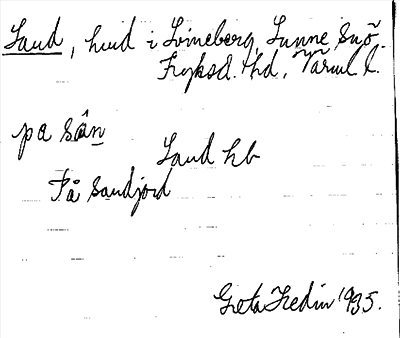 Sand, hmd i Svineberg, Sunne sn
Fryksd. hd, Värml l.
pa sân
Sand hb
På sandjord
Greta Hedin 1935.